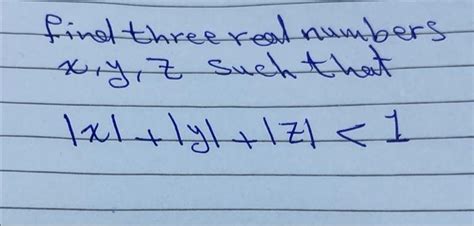 find three real numbers
x, y, z such that
|x| + |y| + |z| < 1